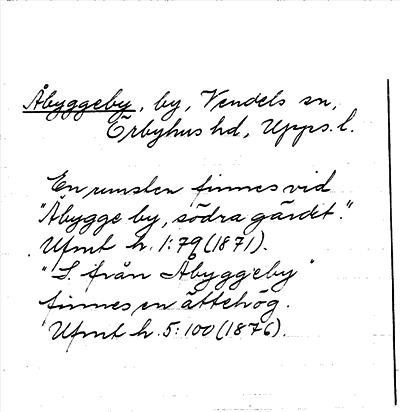 Åbyggeby, by, Vendels sn,
Örbyhus hd, Upps. l.
En runsten finnes vid
"Åbygge by, södra gärdet."
Ufmt h. 1:79 (1871).
"S. från Åbyggeby"
finnes en ättehög.
Ufmt h. 5:100 (1876).